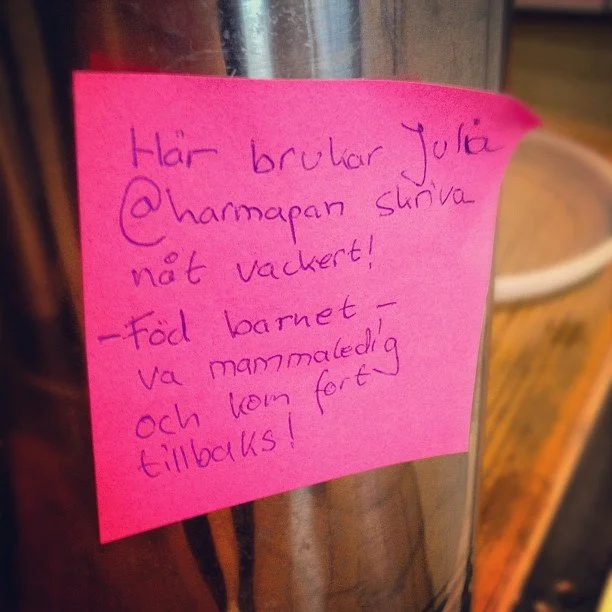 Här brukar Julia
@harmapan skriva
nåt vackert!
-Föd barnet -
va mammaledig
och kom fort
tillbaks!